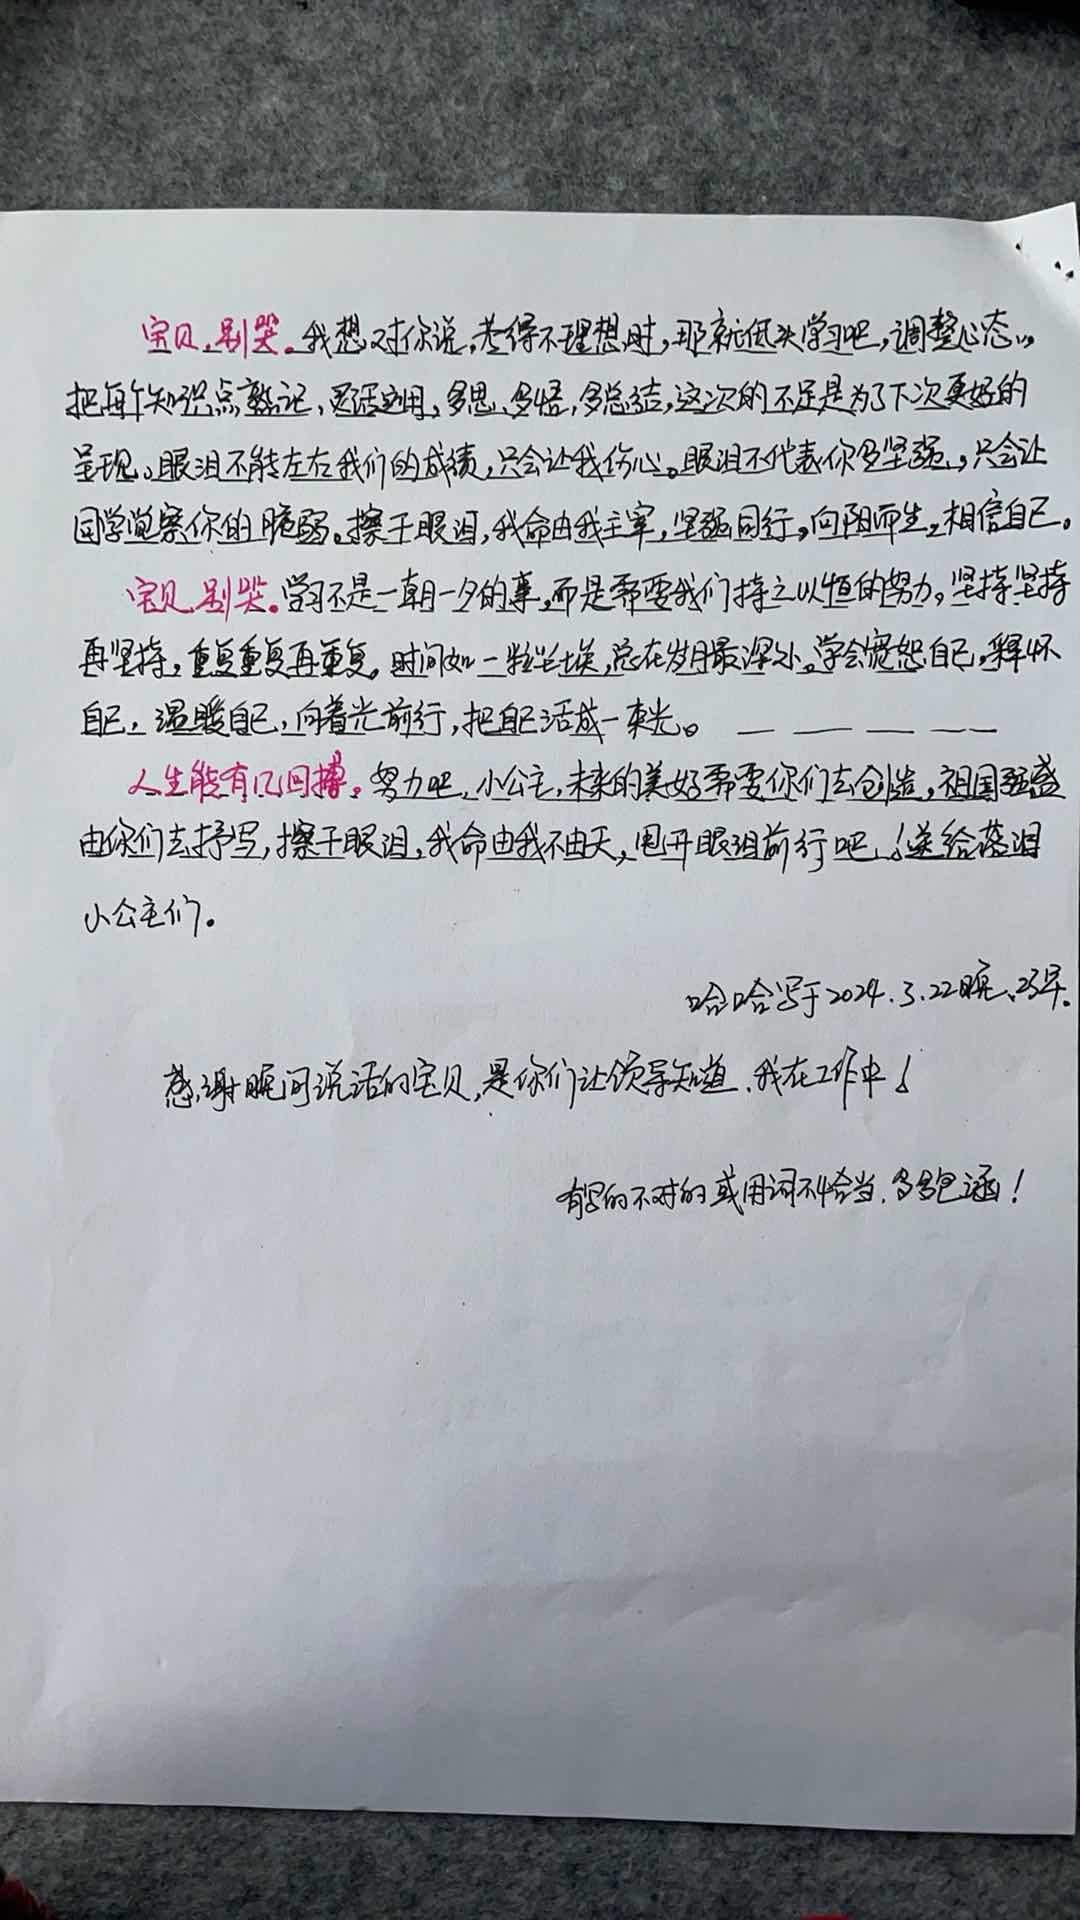 宝贝,别哭。我想对你说,考得不理想时,那就低头学习吧,调整心态,
把每个知识点熟记、灵活运用,多思、多悟,多总结,这次的不足是为了下次更好的
呈现。眼泪不能左右我们的成绩,只会让我伤心。眼泪不代表你多坚强,只会让
同学觉察你的脆弱。擦干眼泪,我命由我主宰,坚强同行,向阳而生,相信自己。
宝贝,别哭。学习不是一朝一夕的事,而是需要我们持之以恒的努力,坚持坚持
再坚持,重复重复再重复。时间如一粒尘埃,总在岁月最深处。学会宽恕自己,释怀
自己,温暖自己,向着光前行,把自己活成一束光。
人生能有几回搏。努力吧,小公主,未来的美好需要你们去创造,祖国强盛
由你们去抒写,擦干眼泪,我命由我不由天,甩开眼泪前行吧!送给落泪
小公主们。
哈哈写于2024.3.22晚、23早。
感谢晚间说话的宝贝,是你们让领导知道,我在工作中!
有写的不对的或用词不恰当,多多包涵!